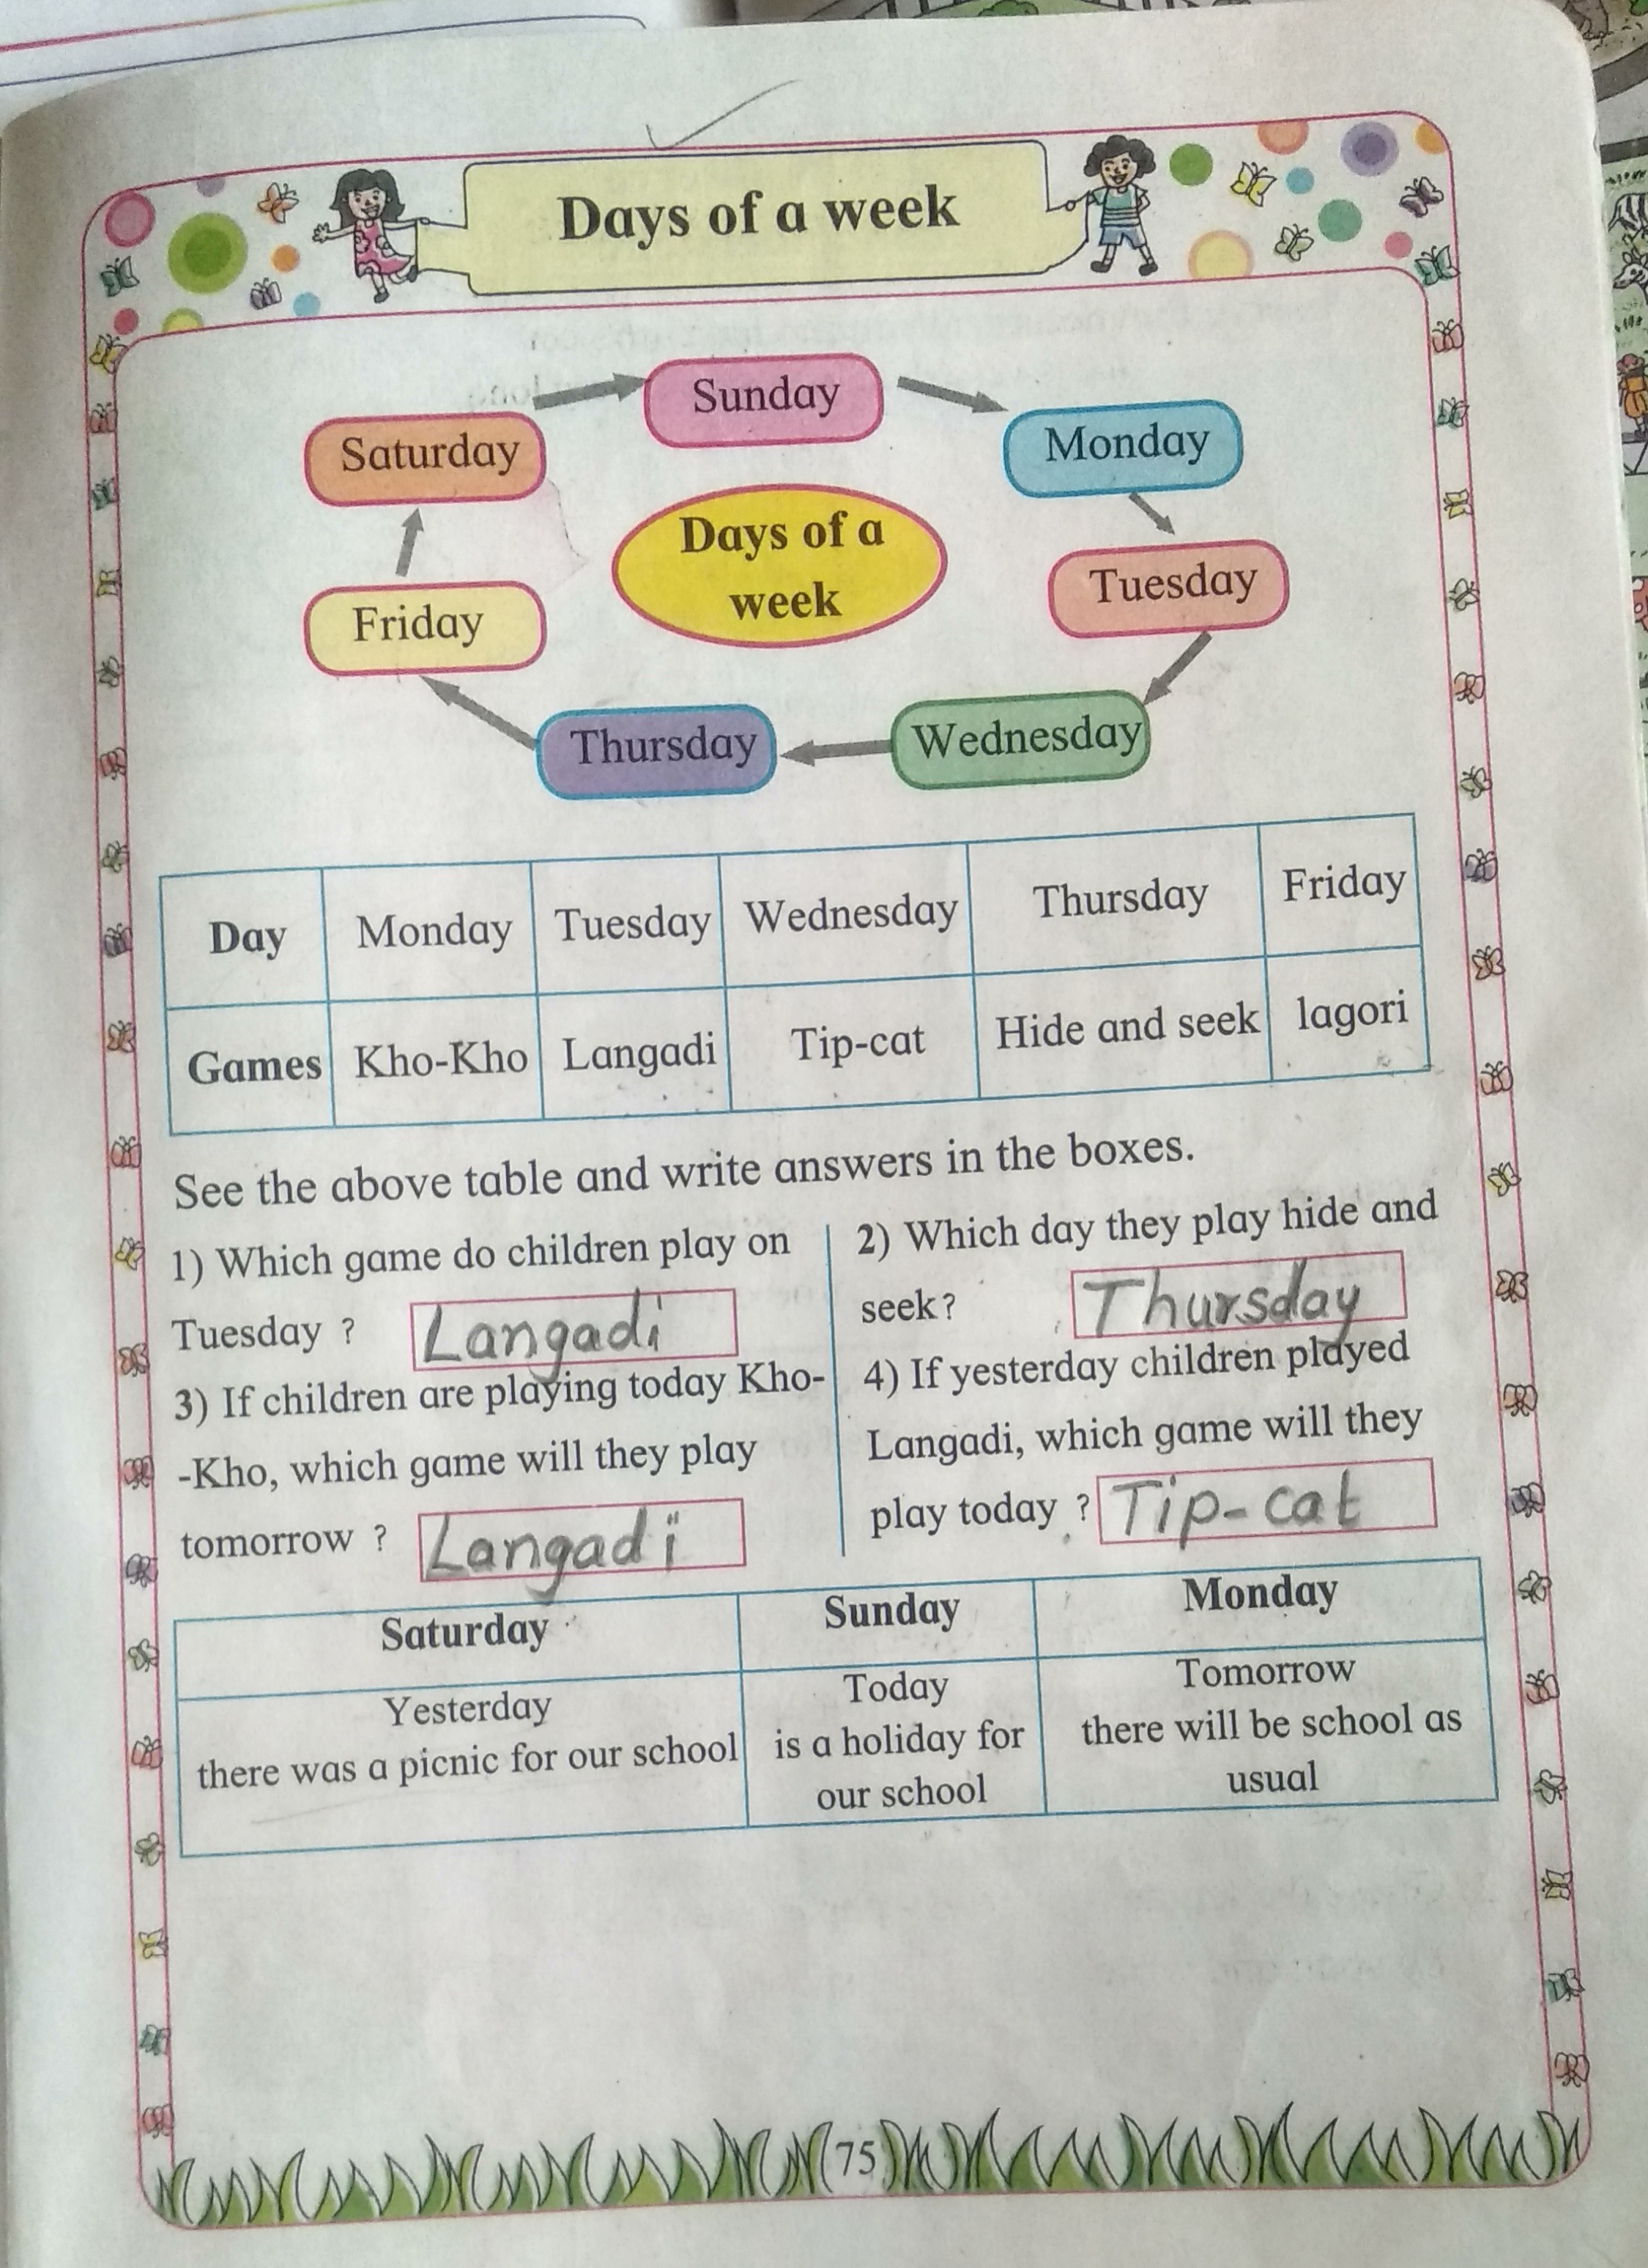 Days of a week
Sunday
Saturday
Monday
Days of a
week
Tuesday
Friday
Thursday
Wednesday
Day Monday Tuesday Wednesday Thursday Friday
Games Kho-Kho Langadi Tip-cat Hide and seek lagori
See the above table and write answers in the boxes.
1) Which game do children play on
Tuesday ? Langadi
2) Which day they play hide and
seek? Thursday
3) If children are playing today Kho-
-Kho, which game will they play
tomorrow ? Langadi
4) If yesterday children played
Langadi, which game will they
play today ? Tip-cat
Saturday Sunday Monday
Yesterday
there was a picnic for our school
Today
is a holiday for
our school
Tomorrow
there will be school as
usual
75